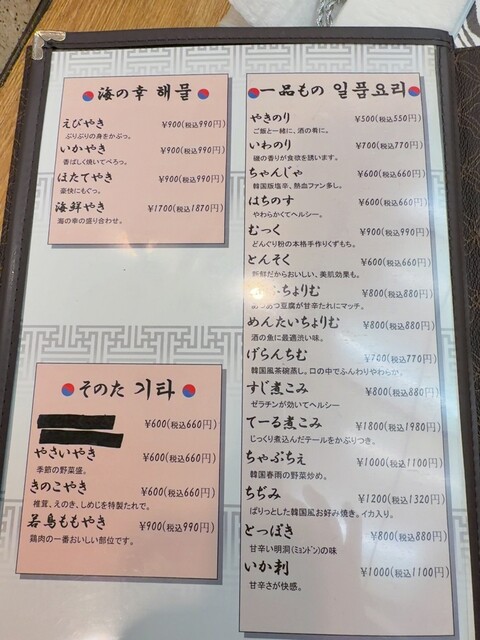 海の幸 해물
えびやき ¥900(税込990円)
ぷりぷりの身をかぷっ。
いかやき ¥900(税込990円)
香ばしく焼いてぺろっ。
ほたてやき ¥900(税込990円)
豪快にもぐっ。
海鮮やき ¥1700(税込1870円)
海の幸の盛り合わせ。
そのた 기타
¥600(税込660円)
やさいやき ¥600(税込660円)
季節の野菜盛。
きのこやき ¥600(税込660円)
椎茸、えのき、しめじを特製たれで。
若鳥ももやき ¥900(税込990円)
鶏肉の一番おいしい部位です。
一品もの 일품요리
やきのり ¥500(税込550円)
ご飯と一緒に、酒の肴に。
いわのり ¥700(税込770円)
磯の香りが食欲を誘います。
ちゃんじゃ ¥600(税込660円)
韓国版塩辛、熱血ファン多し。
はちのす ¥600(税込660円)
やわらかくてヘルシー。
むっく ¥900(税込990円)
どんぐり粉の本格手作りくずもち。
とんそく ¥600(税込660円)
新鮮だからおいしい、美肌効果も。
ちょりむ ¥800(税込880円)
あつ豆腐が甘辛たれにマッチ。
めんたいちょりむ ¥800(税込880円)
酒の魚に最適渋い味。
げらんちむ ¥700(税込770円)
韓国風茶碗蒸し。口の中でふんわりやわらか。
すじ煮こみ ¥800(税込880円)
ゼラチンが効いてヘルシー
てーる煮こみ ¥1800(税込1980円)
じっくり煮込んだテールをかぶりつき。
ちゃぷちぇ ¥1000(税込1100円)
韓国春雨の野菜炒め。
ちぢみ ¥1200(税込1320円)
ぱりっとした韓国風お好み焼き。イカ入り。
とっぽき ¥800(税込880円)
甘辛い明洞(ミョンドン)の味
いか刺 ¥1000(税込1100円)
甘辛さが快感。